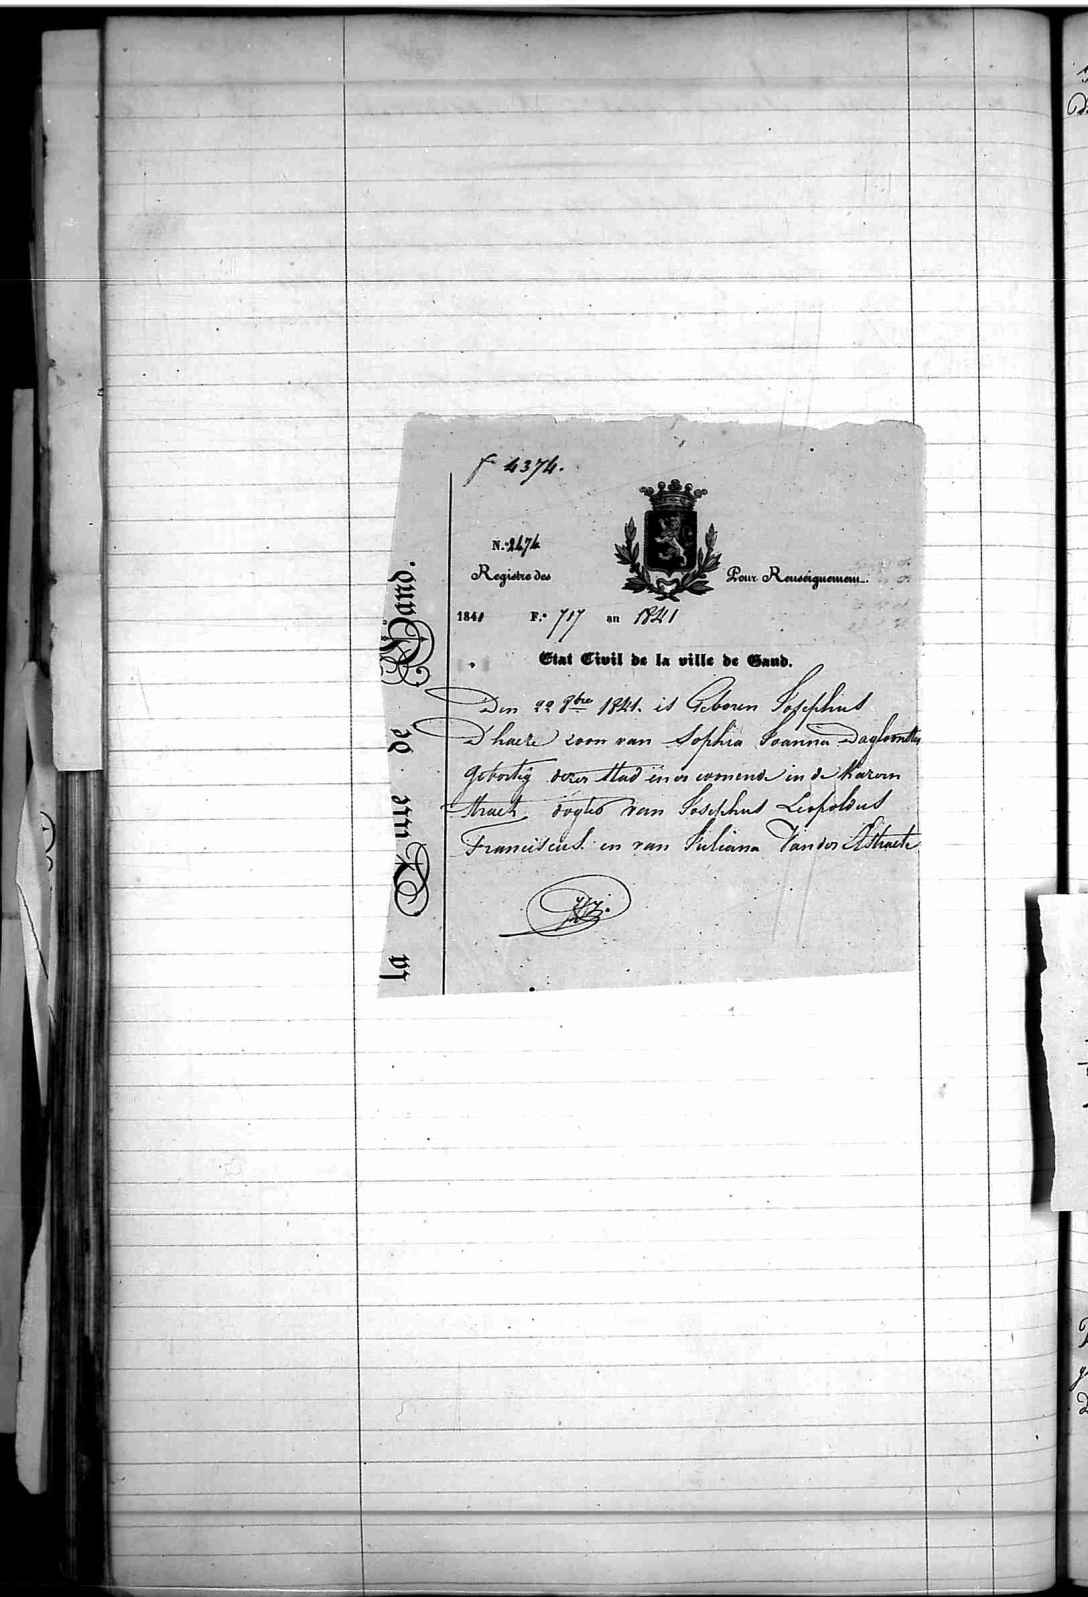 f 4374.
N.º 2474
Registre des
Pour Renseignemens.
1841 F.º 717 an 1821
Etat Civil de la ville de Gand.
Den 22 8bre 1821. is Geboren Josephus
D'haere zoon van Sophia Joanna Dagloonster
Geboortig dezer Stad en er woonende in de
straet dogter van Josephus Leopoldus
Franciscus en van Juliana Vander Straete
la Ville de Gand.